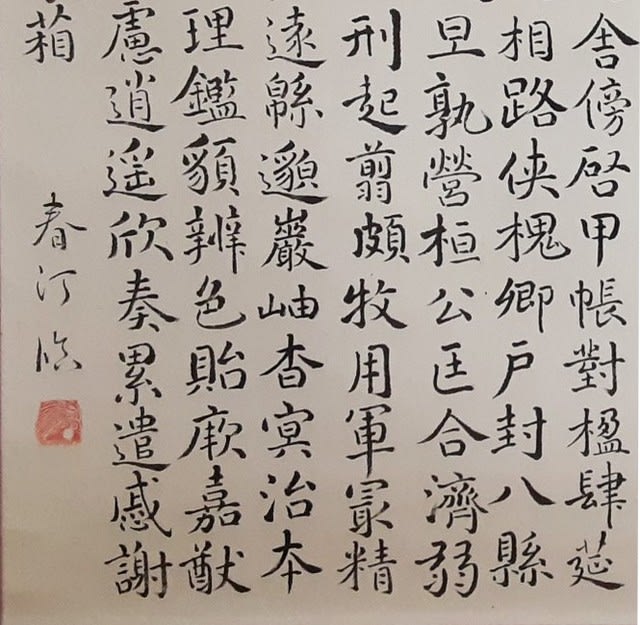 舎傍啓甲帳對楹肆莚
相路俠槐卿戸封八縣
旦孰營桓公匡合濟弱
刑起翦頗牧用軍冣精
遠緜邈巖岫杳冥治夲
理鑑䫉辨色貽厥嘉猷
慮逍遥欣奏累遣慼謝
葙
春汀臨